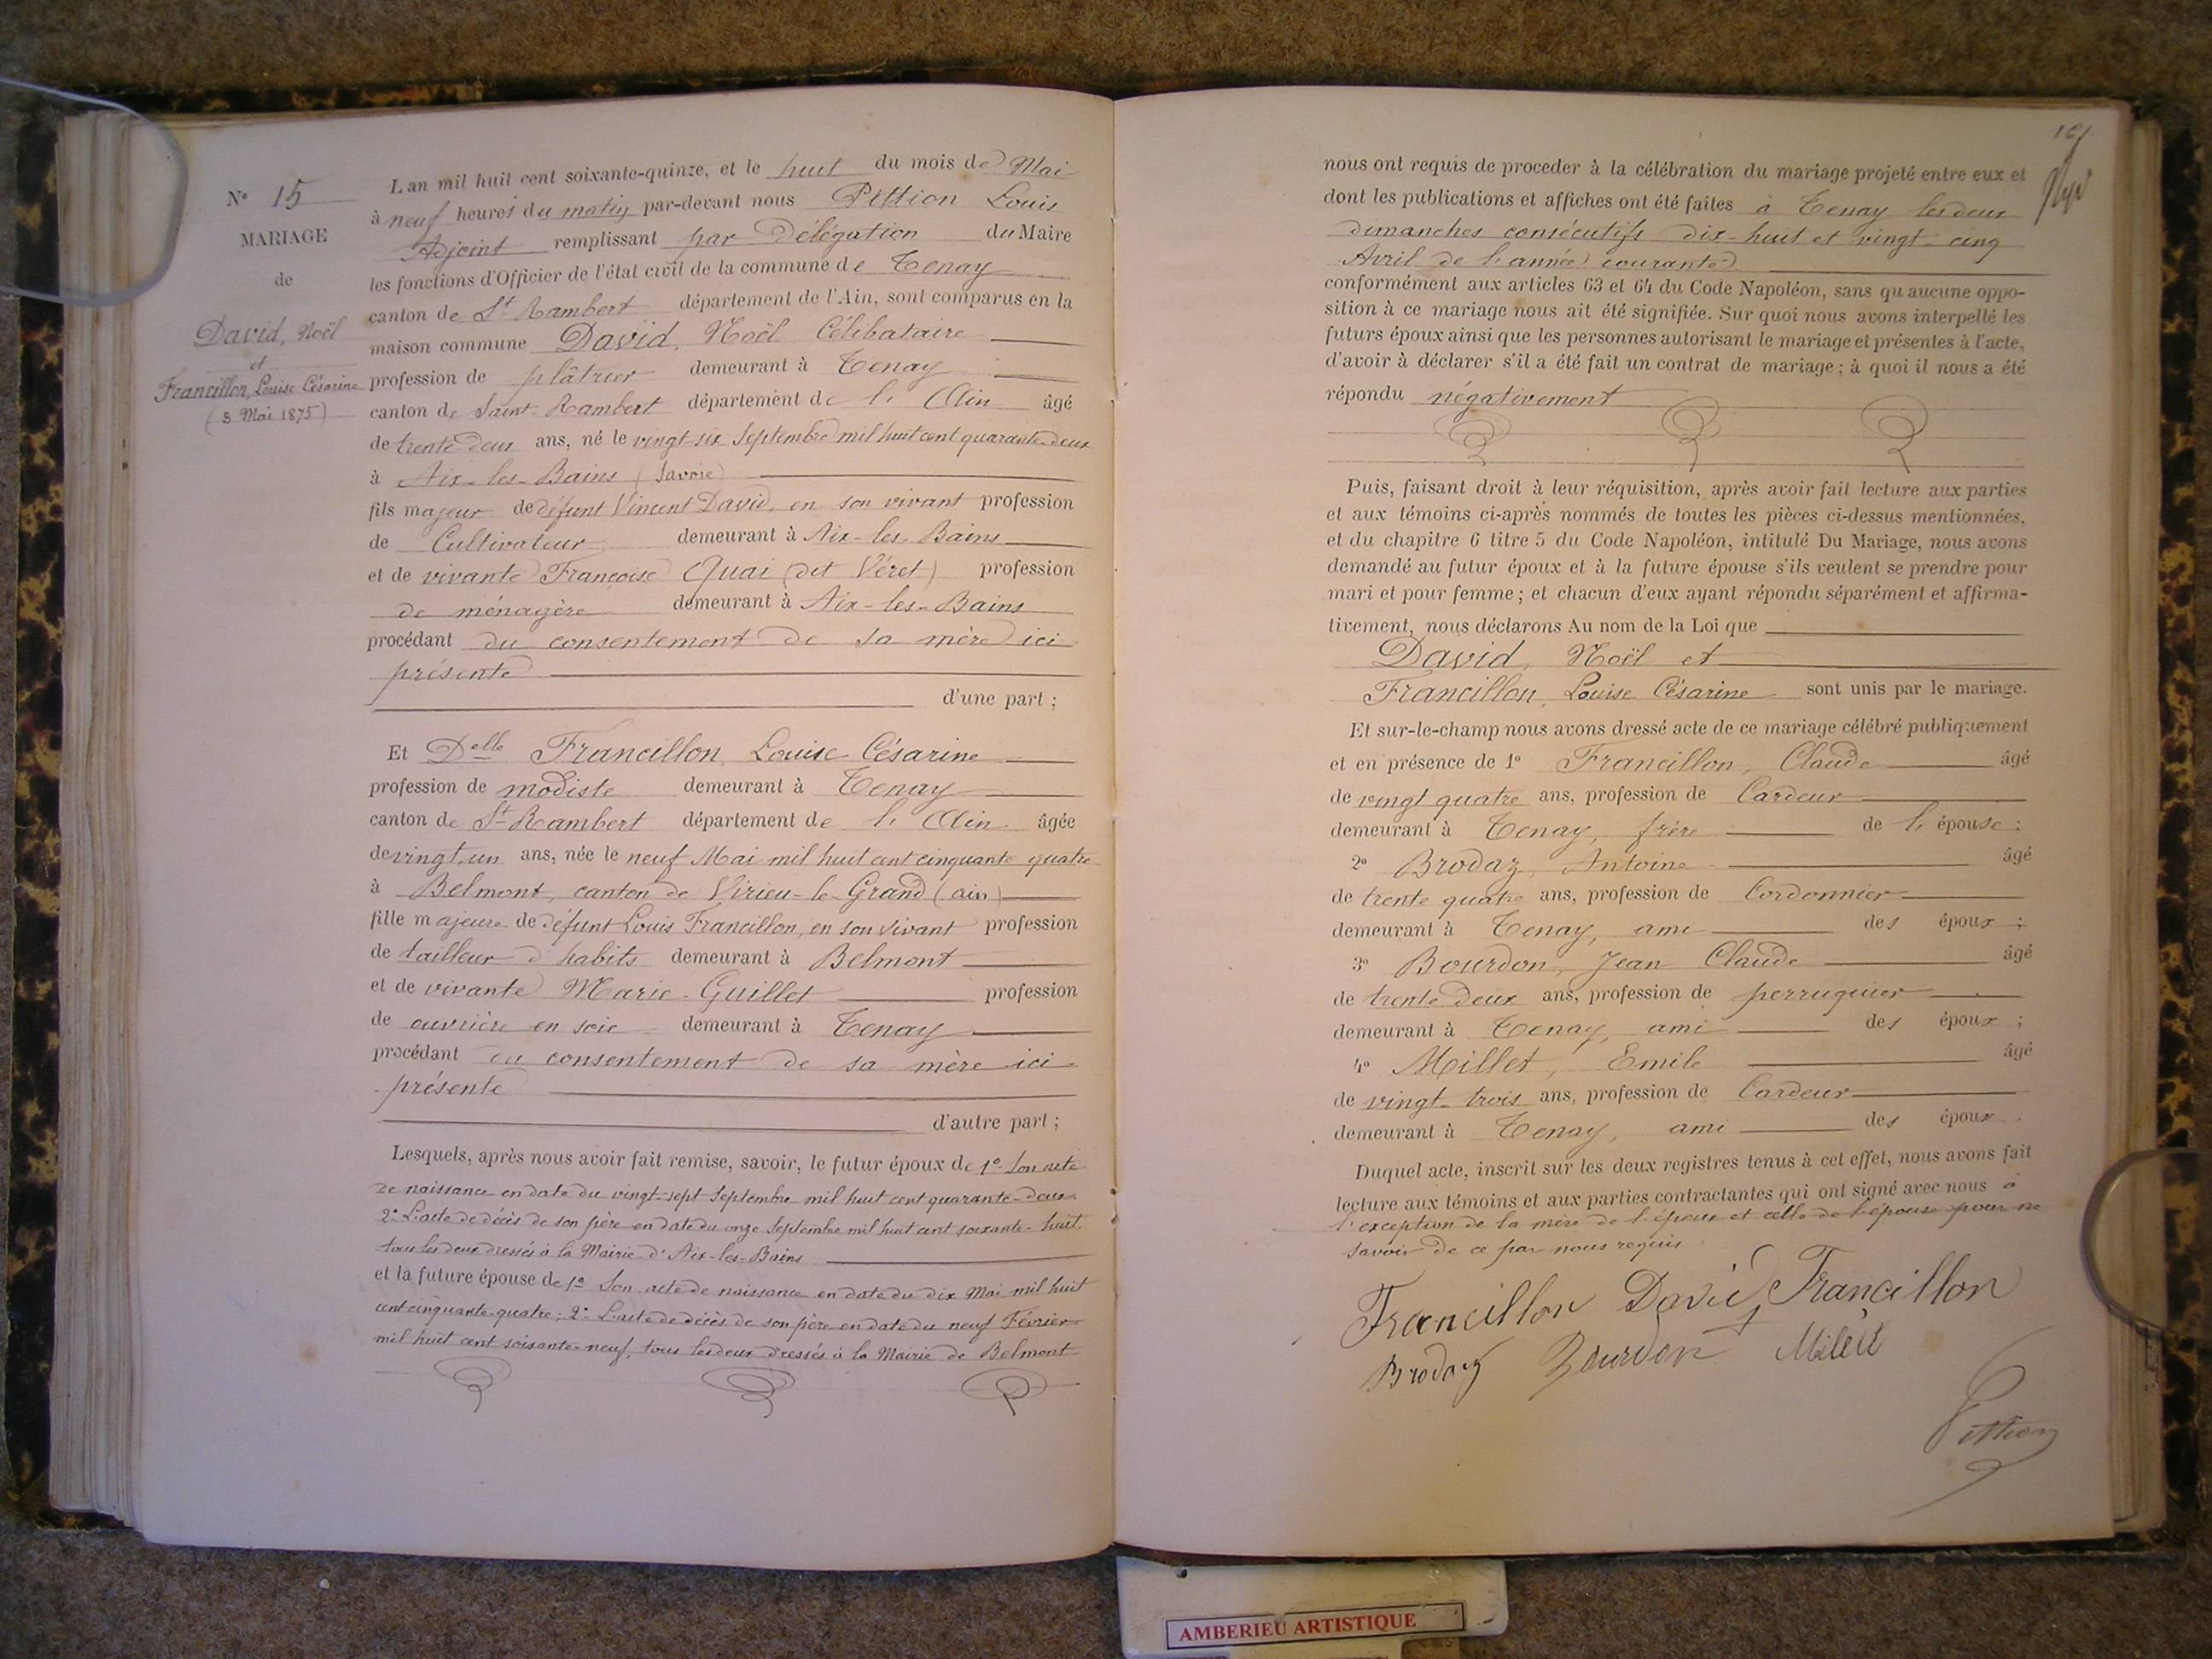 Nº 15
MARIAGE
de
David, Noël
et
Francillon, Louise Césarine
(8 Mai 1875)
L an mil huit cent soixante-quinze, et le huit du mois de Mai
à neuf heures du matin par-devant nous Pittion Louis
Adjoint remplissant par Délégation du Maire
les fonctions d'Officier de l'état civil de la commune de Tenay
canton de St Rambert département de l'Ain, sont comparus en la
maison commune David, Noël Célibataire
profession de plâtrier demeurant à Tenay
canton de Saint-Rambert département de l'Ain âgé
de trente deux ans, né le vingt-six Septembre mil huit cent quarante-deux
à Aix-les-Bains (Savoie)
fils majeur de défunt Vincent David, en son vivant profession
de Cultivateur demeurant à Aix-les-Bains
et de vivante Françoise Quai (dit Véret) profession
de ménagère demeurant à Aix-les-Bains
procédant du consentement de sa mère ici
présente
d'une part ;
Et Delle Francillon, Louise Césarine
profession de modiste demeurant à Tenay
canton de St Rambert département de l'Ain âgée
de vingt un ans, née le neuf Mai mil huit cent cinquante quatre
à Belmont, canton de Virieu-le-Grand (ain)
fille majeure de défunt Louis Francillon, en son vivant profession
de tailleur d'habits demeurant à Belmont
et de vivante Marie Guillet profession
de ouvrière en soie demeurant à Tenay
procédant du consentement de sa mère ici
présente
d'autre part ;
Lesquels, après nous avoir fait remise, savoir, le futur époux de 1º Son acte
de naissance en date du vingt-sept Septembre mil huit cent quarante-deux.
2º L'acte de décès de son père en date du onze Septembre mil huit cent soixante-huit,
tous les deux dressés à la Mairie d'Aix-les-Bains
et la future épouse de 1º Son acte de naissance en date du dix Mai mil huit
cent cinquante-quatre ; 2º L'acte de décès de son père en date du neuf Février
mil huit cent soixante-neuf, tous les deux dressés à la Mairie de Belmont
nous ont requis de proceder à la célébration du mariage projeté entre eux et
dont les publications et affiches ont été faites à Tenay les deux
dimanches consécutifs dix-huit et vingt-cinq
Avril de l'année courante
conformément aux articles 63 et 64 du Code Napoléon, sans qu aucune oppo-
sition à ce mariage nous ait été signifiée. Sur quoi nous avons interpellé les
futurs époux ainsi que les personnes autorisant le mariage et présentes à l'acte,
d'avoir à déclarer s'il a été fait un contrat de mariage ; à quoi il nous a été
répondu négativement
Puis, faisant droit à leur réquisition, après avoir fait lecture aux parties
et aux témoins ci-après nommés de toutes les pièces ci-dessus mentionnées,
et du chapitre 6 titre 5 du Code Napoléon, intitulé Du Mariage, nous avons
demandé au futur époux et à la future épouse s'ils veulent se prendre pour
mari et pour femme ; et chacun d'eux ayant répondu séparément et affirma-
tivement, nous déclarons Au nom de la Loi que
David, Noël et
Francillon, Louise Césarine sont unis par le mariage.
Et sur-le-champ nous avons dressé acte de ce mariage célébré publiquement
et en présence de 1º Francillon, Claude âgé
de vingt quatre ans, profession de Cardeur
demeurant à Tenay, frère de l'épouse ;
2º Brodaz, Antoine âgé
de trente quatre ans, profession de Cordonnier
demeurant à Tenay, ami des époux ;
3º Bourdon, Jean Claude âgé
de trente deux ans, profession de perruquier
demeurant à Tenay, ami des époux ;
4º Millet, Emile âgé
de vingt-trois ans, profession de Cardeur
demeurant à Tenay, ami des époux
Duquel acte, inscrit sur les deux registres tenus à cet effet, nous avons fait
lecture aux témoins et aux parties contractantes qui ont signé avec nous à
l'exception de la mère de l'époux et celle de l'épouse pour ne
savoir de ce par nous requis
Francillon David Francillon
Brodaz Bourdon Milèt
Pittion
AMBERIEU ARTISTIQUE